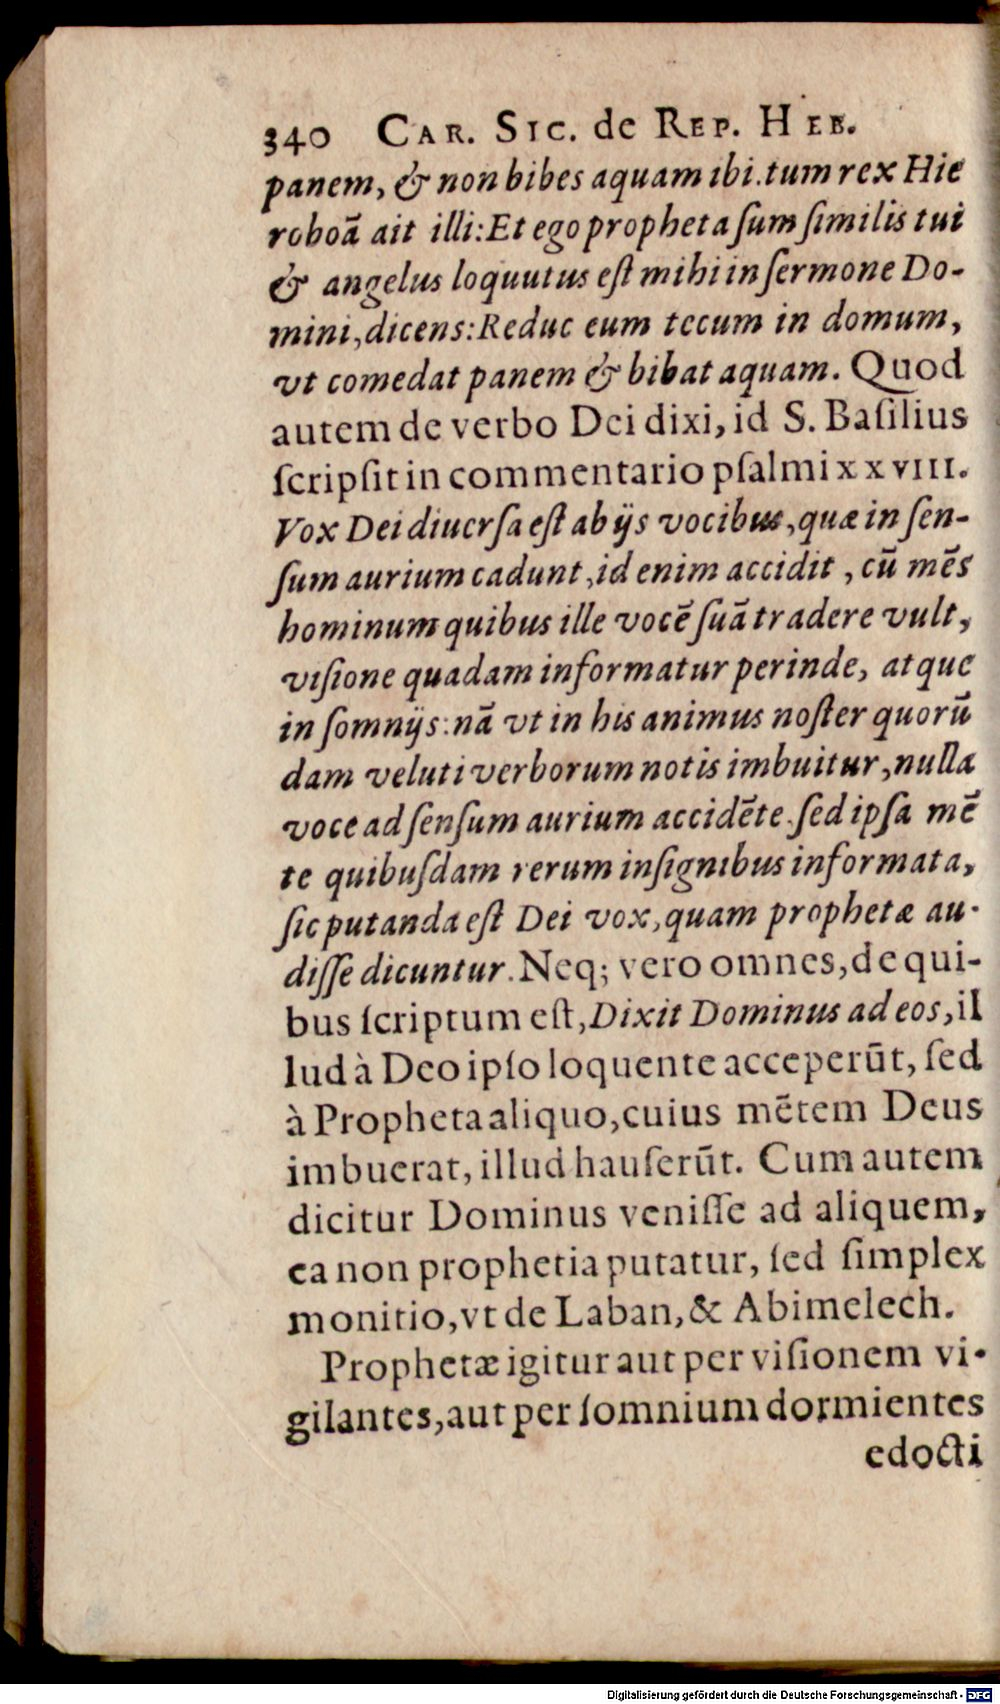 340 CAR. SIC. de REP. HEB.
panem, & non bibes aquam ibi. tum rex Hie
roboã ait illi: Et ego propheta ſum ſimilis tui
& angelus loquutus eſt mihi in ſermone Do-
mini, dicens: Reduc eum tecum in domum,
vt comedat panem & bibat aquam. Quod
autem de verbo Dei dixi, id S. Baſilius
ſcripſit in commentario pſalmi xxviii.
Vox Dei diuerſa eſt ab ijs vocibus, quæ in ſen-
ſum aurium cadunt, id enim accidit, cũ mẽs
hominum quibus ille vocẽ ſuã tradere vult,
viſione quadam informatur perinde, atque
in ſomnijs: nã vt in his animus noſter quorũ
dam veluti verborum notis imbuitur, nulla
voce ad ſenſum aurium accidẽte. ſed ipſa mẽ
te quibuſdam rerum inſignibus informata,
ſic putanda eſt Dei vox, quam prophetæ au-
diſſe dicuntur. Neq; vero omnes, de qui-
bus ſcriptum eſt, Dixit Dominus ad eos, il
lud à Deo ipſo loquente acceperũt, ſed
à Propheta aliquo, cuius mẽtem Deus
imbuerat, illud hauſerũt. Cum autem
dicitur Dominus veniſſe ad aliquem,
ea non prophetia putatur, ſed ſimplex
monitio, vt de Laban, & Abimelech.
Prophetæ igitur aut per viſionem vi-
gilantes, aut per ſomnium dormientes
edocti
Digitalisierung gefördert durch die Deutsche Forschungsgemeinschaft - DFG